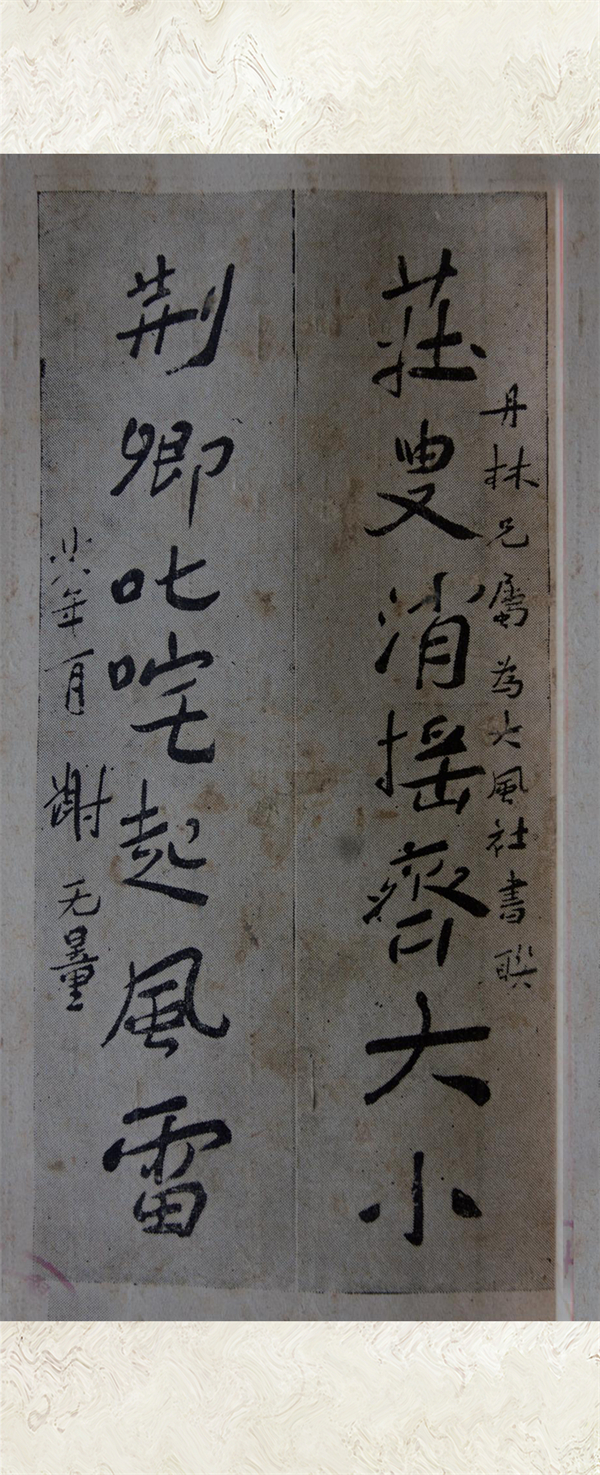 丹林兄屬為大風社書聯
莊叟消搖齊大小
荆卿叱咤起風雷
廿八年一月 謝无量